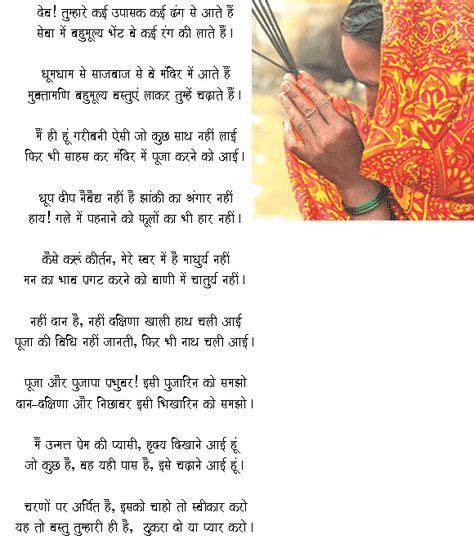 देव! तुम्हारे कई उपासक कई ढंग से आते हैं
सेवा में बहुमूल्य भेंट वे कई रंग की लाते हैं।
धूमधाम से साजबाज से वे मंदिर में आते हैं
मुक्तामणि बहुमूल्य वस्तुएं लाकर तुम्हें चढ़ाते हैं।
मैं ही हूं गरीबनी ऐसी जो कुछ साथ नहीं लाई
फिर भी साहस कर मंदिर में पूजा करने को आई।
धूप दीप नैवैद्य नहीं है झांकी का श्रंगार नहीं
हाय! गले में पहनाने को फूलों का भी हार नहीं।
कैसे करूं कीर्तन, मेरे स्वर में है माधुर्य नहीं
मन का भाव प्रगट करने को वाणी में चातुर्य नहीं।
नहीं दान है, नहीं दक्षिणा खाली हाथ चली आई
पूजा की विधि नहीं जानती, फिर भी नाथ चली आई।
पूजा और पुजापा प्रभुवर! इसी पुजारिन को समझो
दान-दक्षिणा और निछावर इसी भिखारिन को समझो।
मैं उन्मत्त प्रेम की प्यासी, हृदय दिखाने आई हूं
जो कुछ है, वह यही पास है, इसे चढ़ाने आई हूं।
चरणों पर अर्पित है, इसको चाहो तो स्वीकार करो
यह तो वस्तु तुम्हारी ही है, ठुकरा दो या प्यार करो।